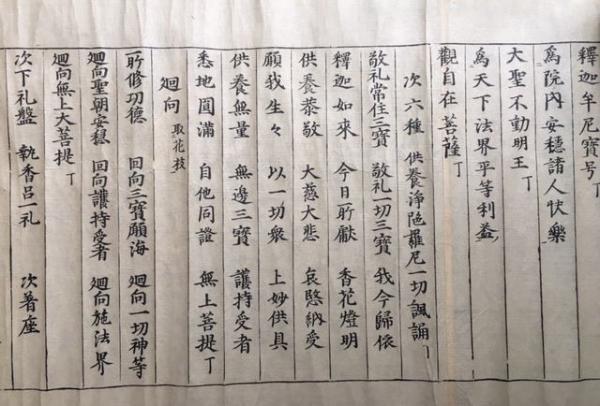 釋迦牟尼寶号丁
為院內安穩諸人快樂
大聖不動明王丁
為天下法界平等利益
觀自在菩薩丁
次六種 供養淨陁羅尼一切諷誦丁
敬礼常住三寶 敬礼一切三寶 我今歸依
釋迦如來 今日所獻 香花燈明
供養恭敬 大慈大悲 哀愍納受
願我生々 以一切衆 上妙供具
供養無量 無邊三寶 護持受者
悉地圓滿 自他同證 無上菩提丁
廻向 取花枝
所修功德 回向三寶願海 廻向一切神等
廻向聖朝安穩 回向護持受者 廻向施法界
廻向無上大菩提丁
次下礼盤 執香呂一礼 次著座